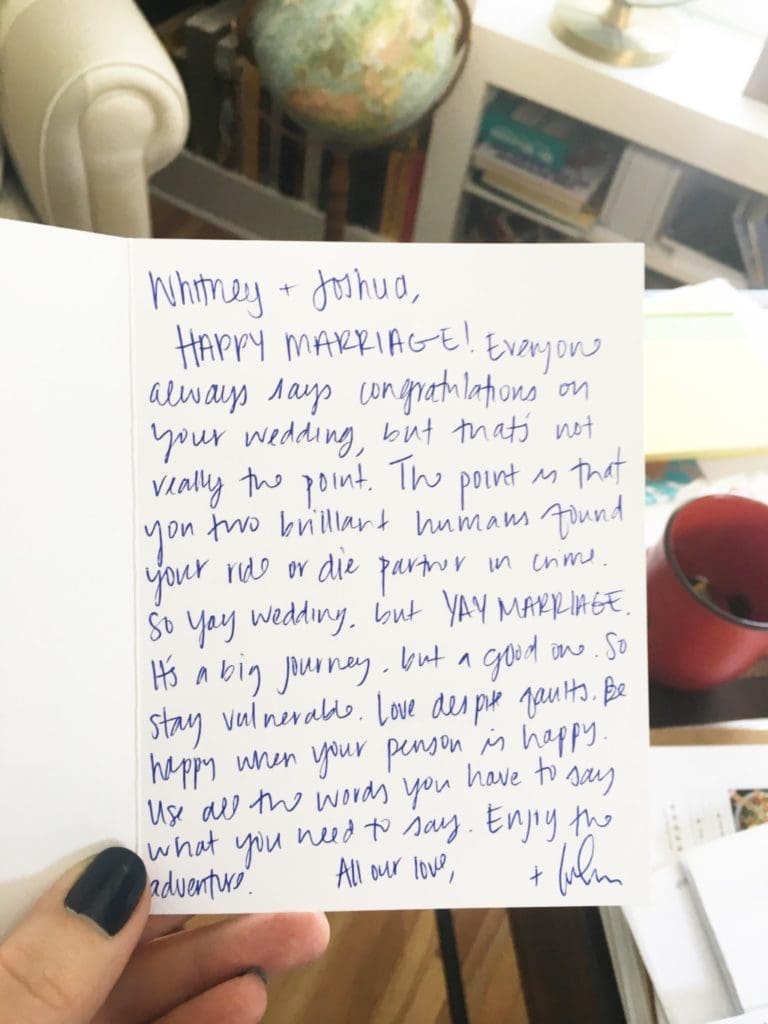 Whitney + Joshua,
HAPPY MARRIAGE! Everyone
always says congratulations on
your wedding, but that's not
really the point. The point is that
you two brilliant humans found
your ride or die partner in crime.
So yay wedding, but YAY MARRIAGE.
It's a big journey, but a good one. So
stay vulnerable. Love despite faults. Be
happy when your person is happy.
Use all the words you have to say
what you need to say. Enjoy the
adventure. All our love, +